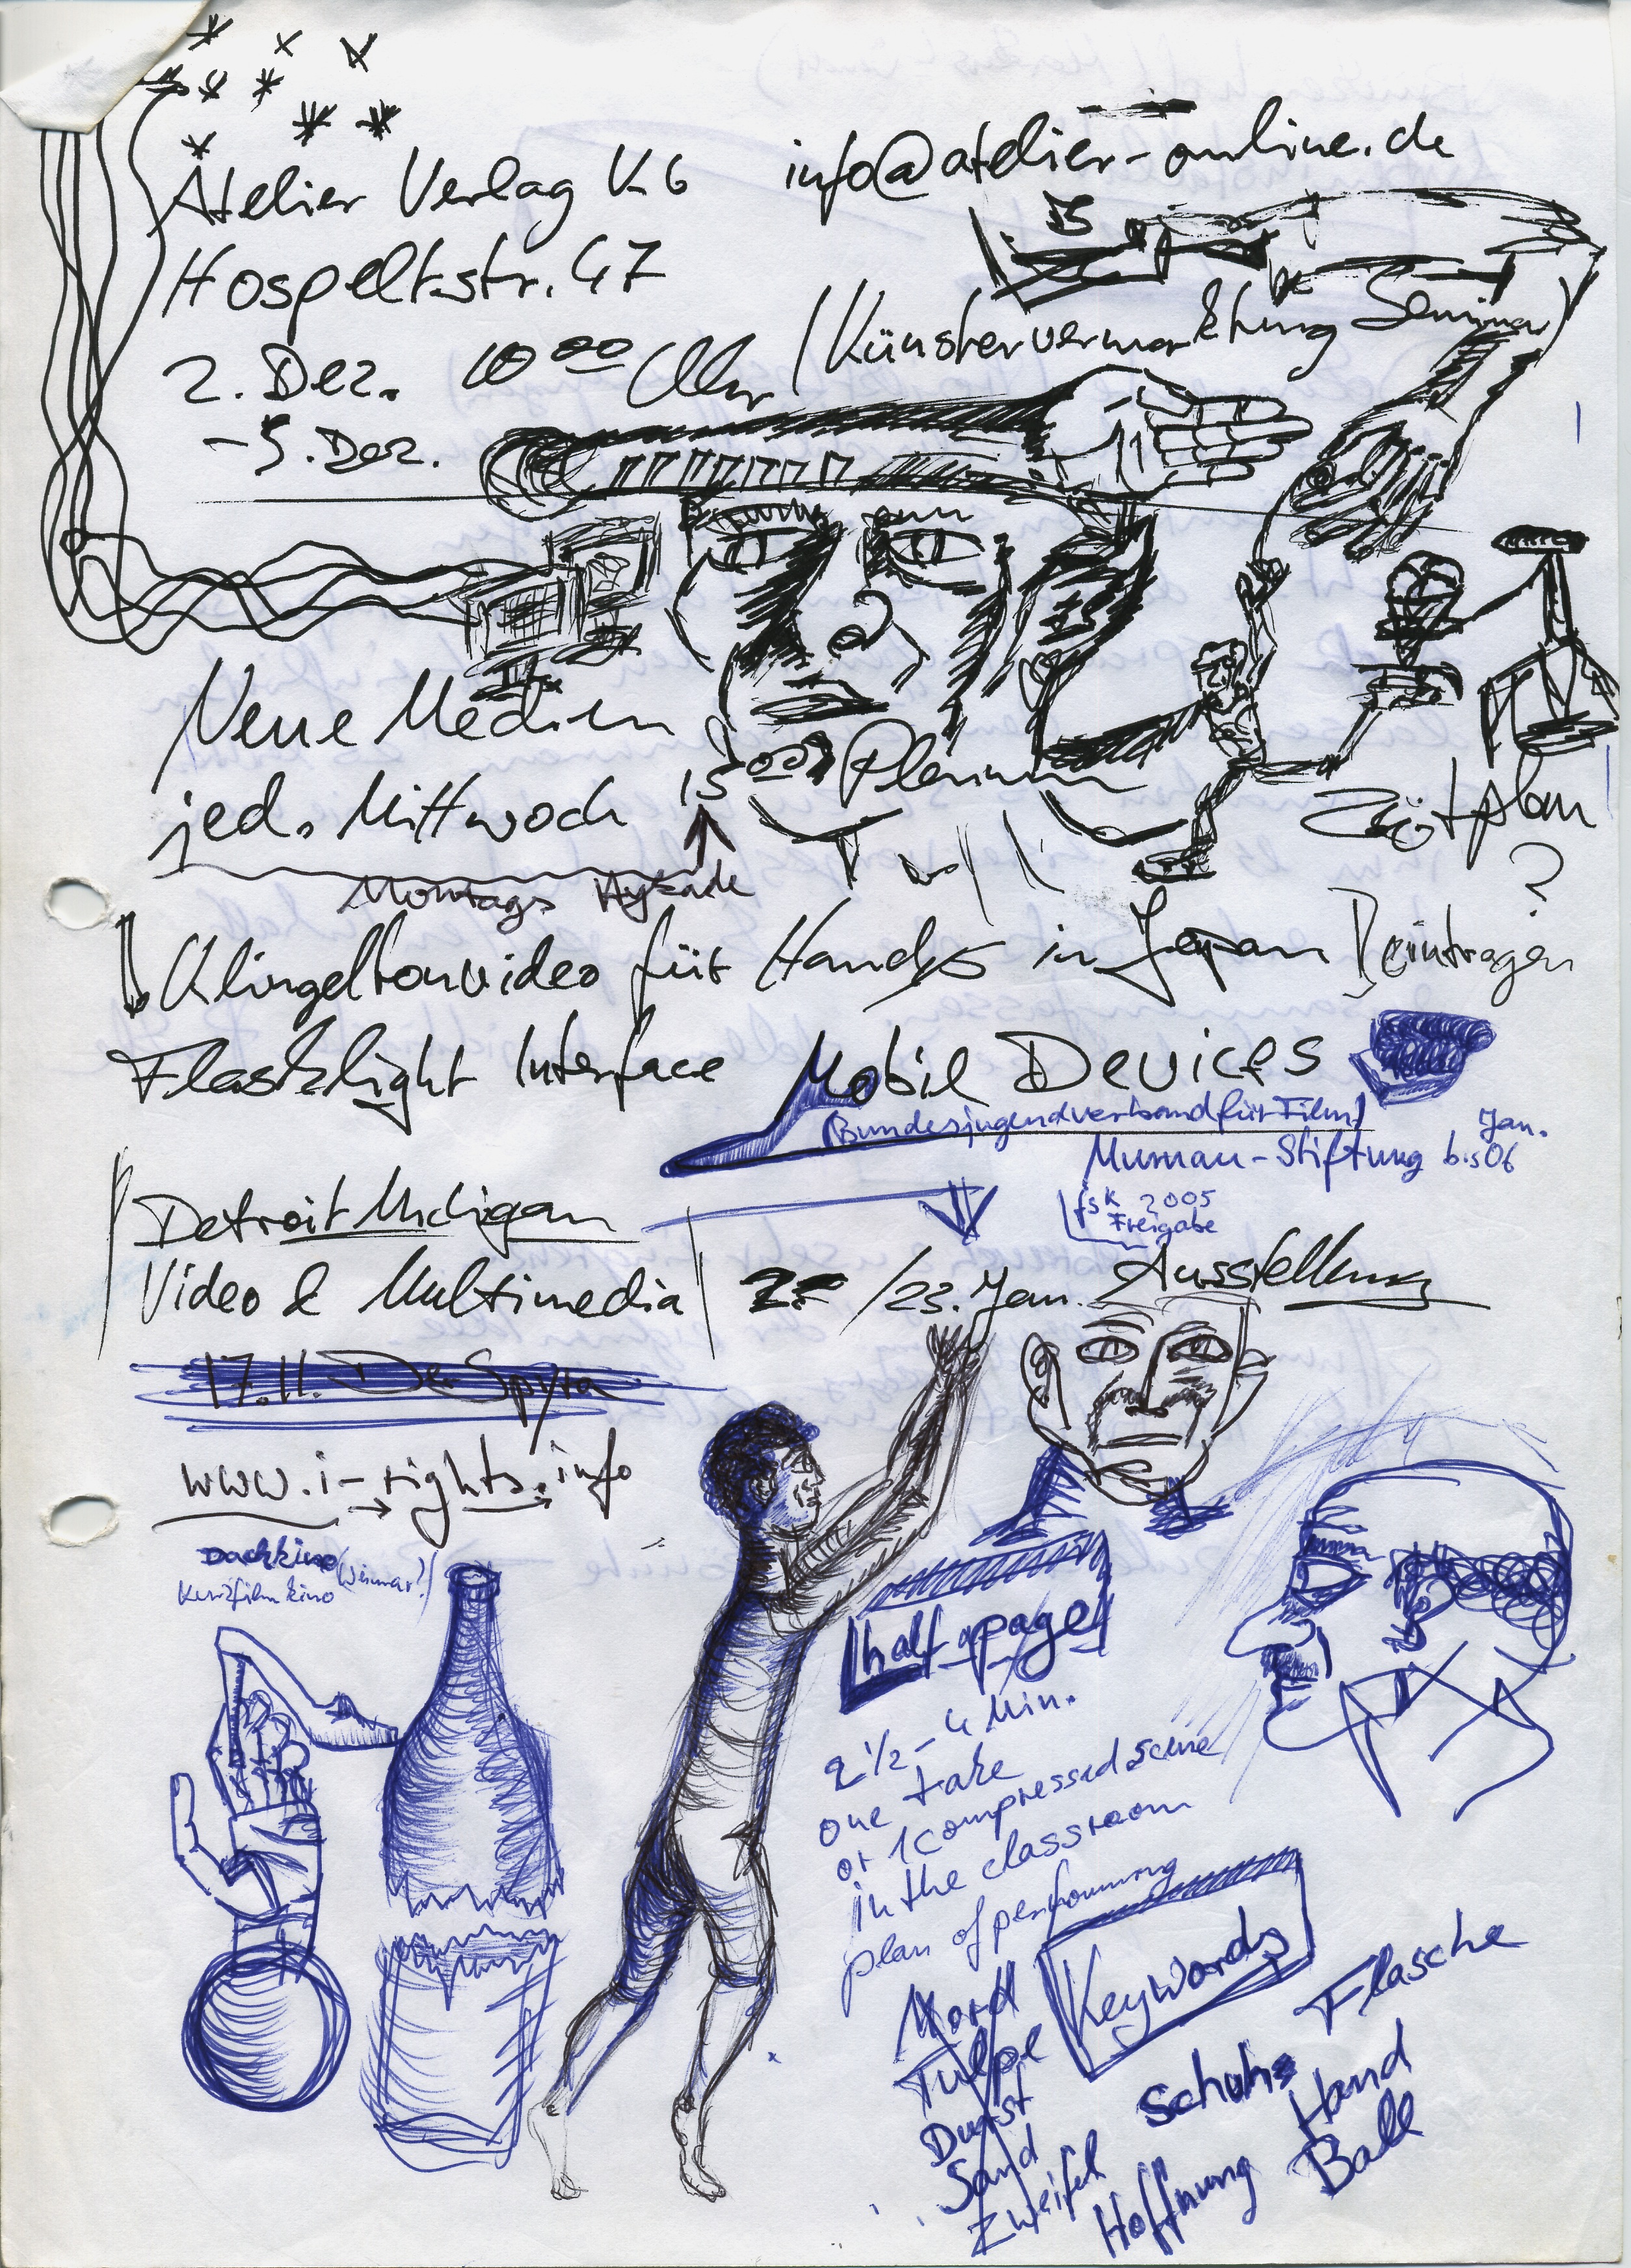 Atelier Verlag K6 info@atelier-online.de
Hospeltstr. 47
2. Dez. 10 00 Uhr (Künstervermarktung Seminar)
-5. Dez.
Neue Medien
jed. Mittwoch 15 00 Plenum
Zeitplan
?
Montags
Klingeltonvideo für Handys in Japan eintragen
Flashlight Interface Mobil Devices
(Bundesjugendverband für Film)
Murnau-Stiftung bis Jan. 06
fsk 2005
Freigabe
Detroit Michigan
Video & Multimedia /23. Jan. Ausstellung
17.11. Der Spyra
www.i-rights.info
Dachkino (Weimar?)
Kurzfilmkino
half a page
2 1/2 - 4 Min.
one take
or 1 compressed scene
in the classroom
plan of performing
Keywords
Mord
Tulpe
Durst
Sand
Zweifel
Flasche
Schuh
Hand
Ball
Hoffnung